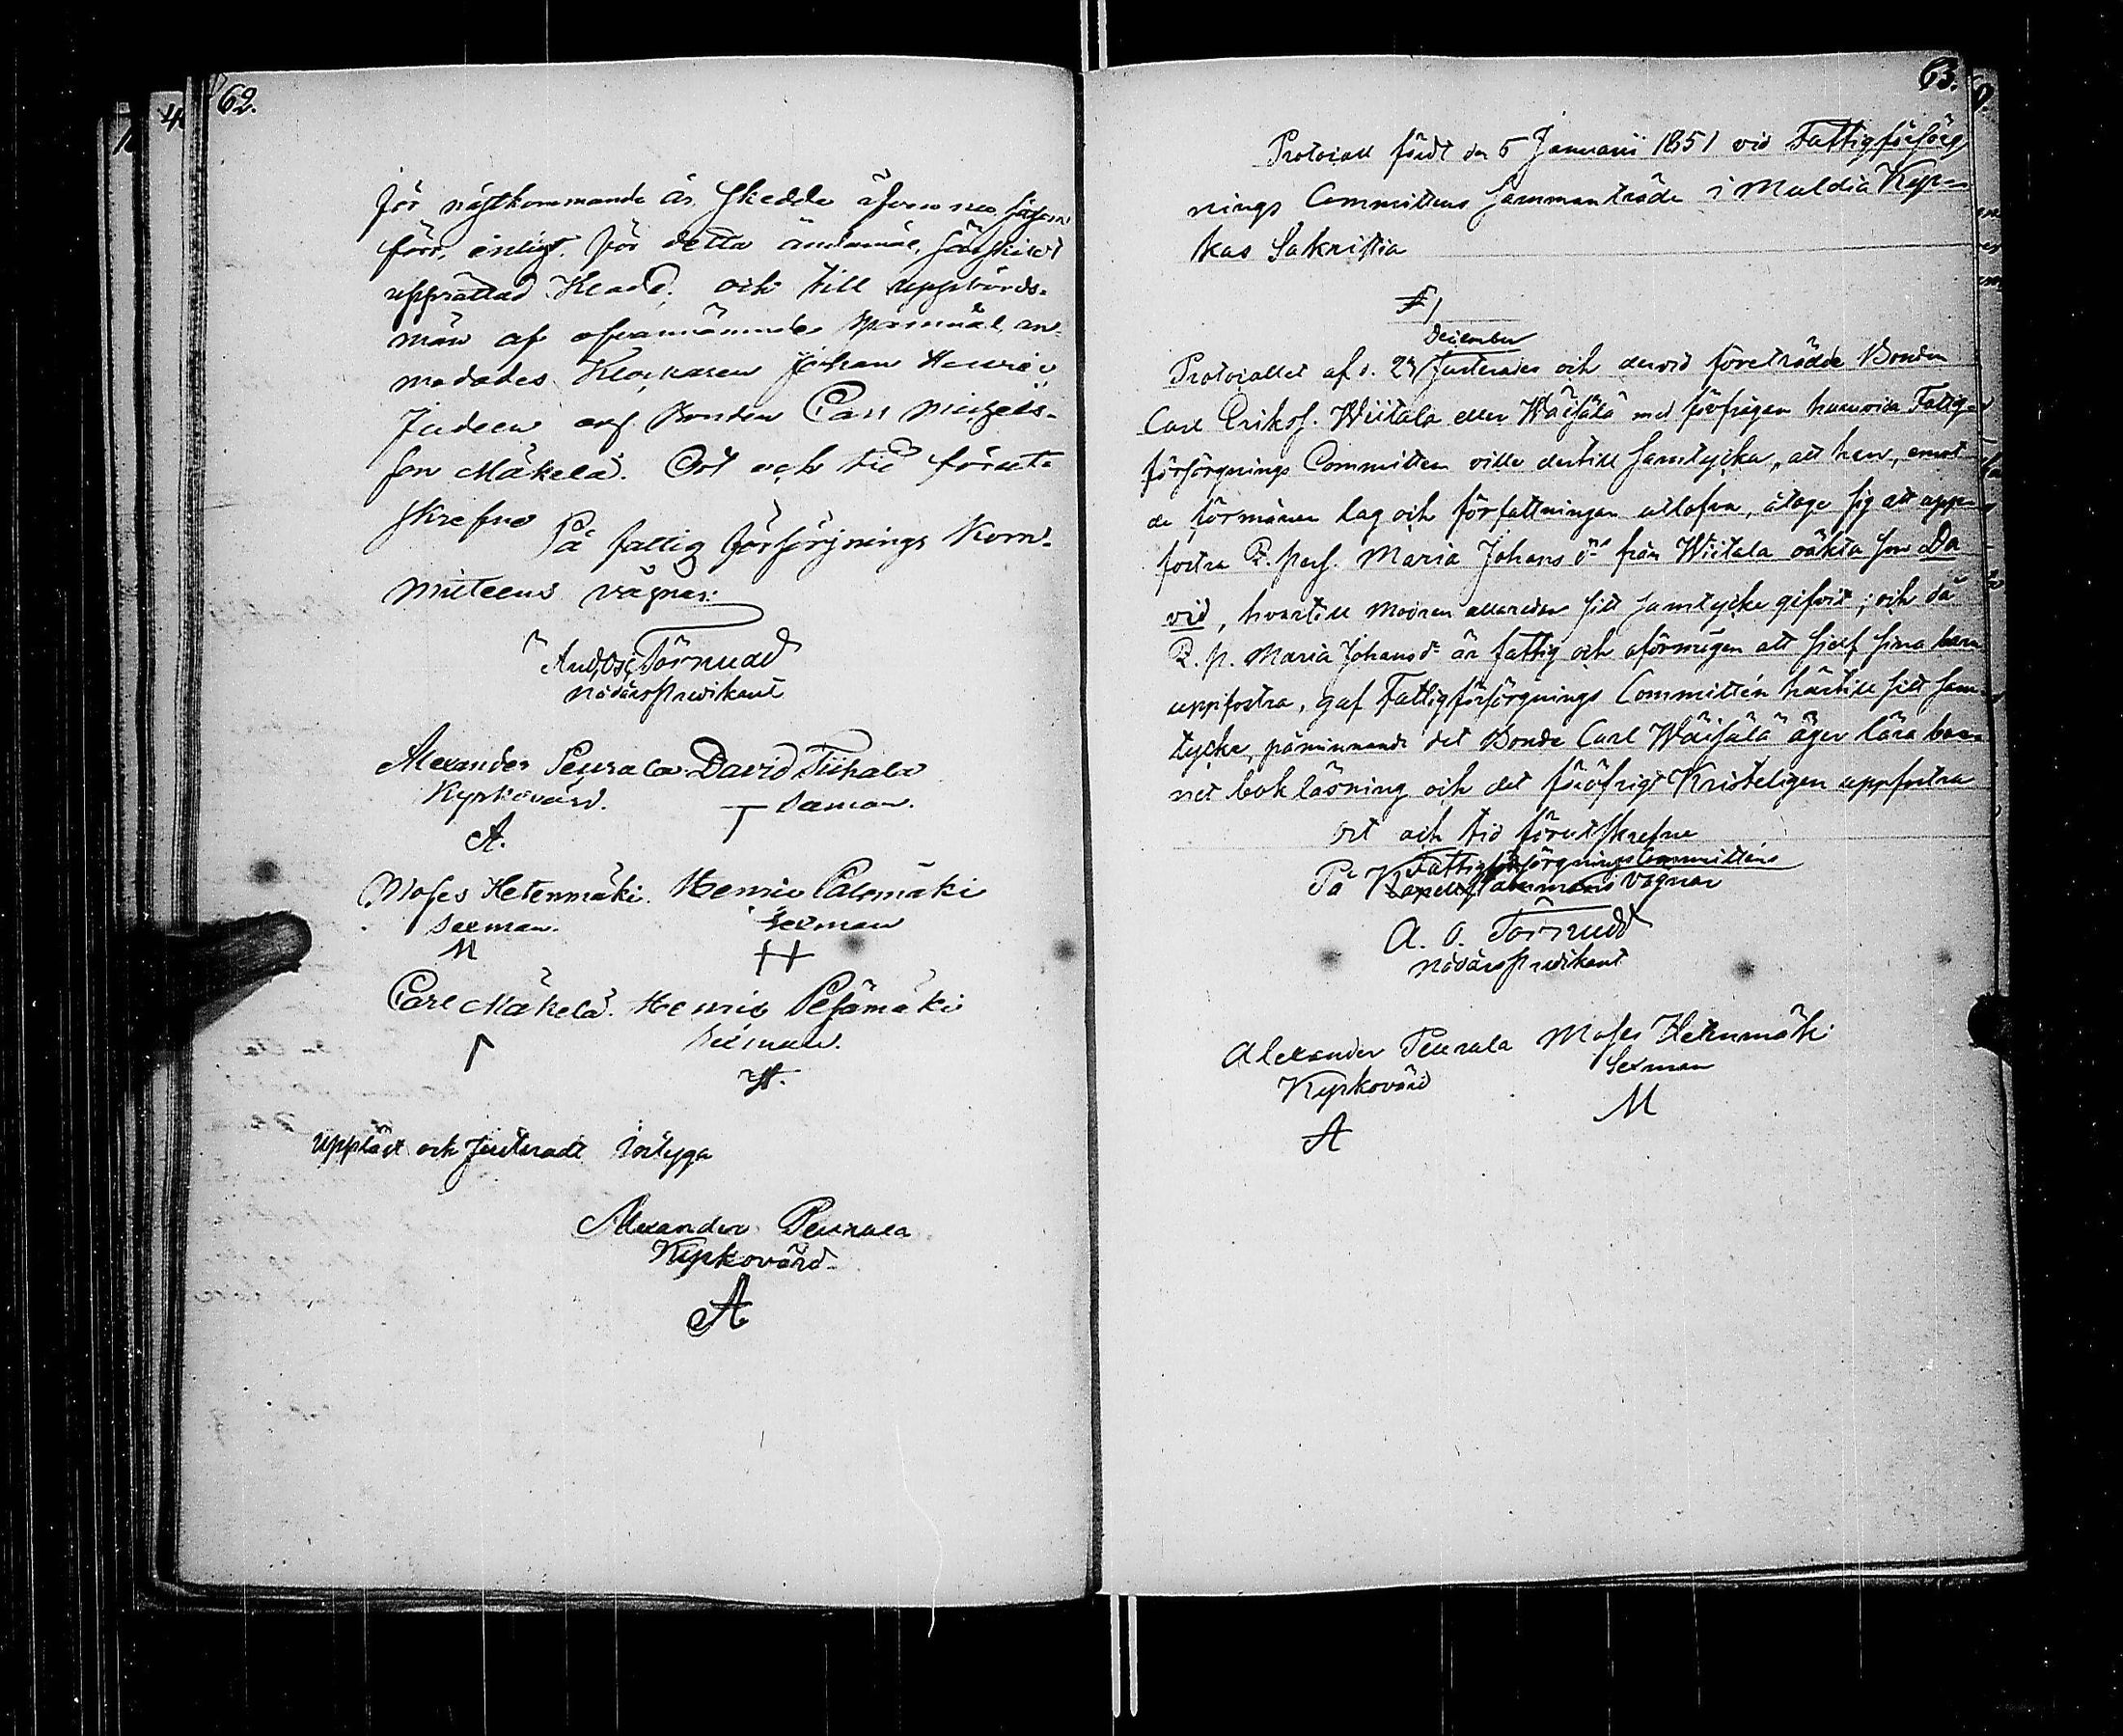 62.
för nästkommande år skedde äfven nu såsom
förr, enligt för detta ändamål, särskilt
upprättad Kladd, och till uppbörds-
män af ofvannämnde spanmål an-
modades Klockaren Johan Henric
Judeen och Bonden Carl Michels-
son Mäkelä. Ort och tid förut-
skrefne
På fattigförsörjnings Kom-
mitteens vägnar:
Törnudd
Nödårspredikant
Alexander Peurala David Tiihala
Kyrkovärd. Sexman.
A. T
Moses Hetenmäki. Henric Palomäki
Sexman. Sexman
M
Carl Mäkelä. Henric Pesämäki
Sexman.
Uppläst och Justeradt intyga
Alexander Peurala
Kyrkovärd
A
63.
Protocoll fördt den 6 Januarii 1851 vid Fattigförsörg
nings Committens sammanträde i Muldia Kyr-
kas Sakristia
§ 1
December
Protocollet af d. 29 Justerades och dervid företrädde Bonden
Carl Eriks. Wiitala eller Wäisälä med förfrågan huruvida Fattig-
försörgnings Committen ville dertill samtycka, att han, emot
de förmåner lag och författningar utlofva, åtage sig att upp-
fostra Q. pers. Maria Johans dr från Wiitala oäkta son Da
vid, hvartill modren allaredan sitt samtycke gifvit; och då
Q. p. Maria Johansdr är fattig och oförmögen att sjelf sina barn
uppfostra, gaf Fattigförsörgnings Committén härtill sitt sam-
tycke, påminnande det Bonde Carl Wäisälä äger lära bar-
net bokläsning och det föröfrigt Kristeligen uppfostra
Ort och tid förutskrefne
Fattigförsörgnings Committéns
På vägnar
A. O. Törnudd
Nödårspredikant
Alexander Peurala Moses Hetenmäki
Kyrkovärd Sexman
A M